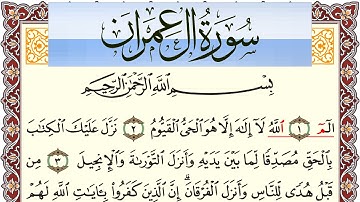 سُورَةُ آلِ عِمْرَانَ
بِسْمِ ٱللَّهِ ٱلرَّحْمَٰنِ ٱلرَّحِيمِ
الٓمٓ ١ ٱللَّهُ لَآ إِلَٰهَ إِلَّا هُوَ ٱلْحَىُّ ٱلْقَيُّومُ ٢ نَزَّلَ عَلَيْكَ ٱلْكِتَٰبَ
بِٱلْحَقِّ مُصَدِّقًا لِّمَا بَيْنَ يَدَيْهِ وَأَنزَلَ ٱلتَّوْرَىٰةَ وَٱلْإِنجِيلَ ٣ مِن
قَبْلُ هُدًى لِّلنَّاسِ وَأَنزَلَ ٱلْفُرْقَانَ ۗ إِنَّ ٱلَّذِينَ كَفَرُوا۟ بِـَٔايَٰتِ ٱللَّهِ لَهُمْ